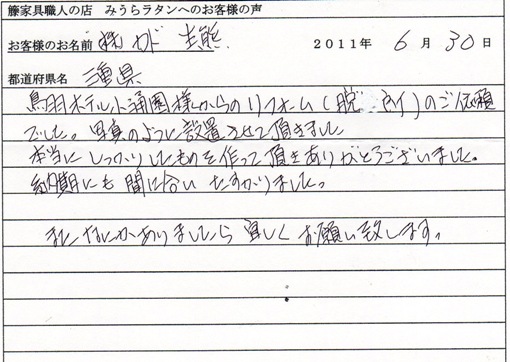 籐家具職人の店 みうらラタンへのお客様の声
お客様のお名前 (株)カド 2011年 6月30日
都道府県名 三重県
鳥羽ホテル小涌園様からのリフォーム(脱 イ)のご依頼
でした。写真のように設置させて頂きました
本当にしっかりしたものを作って頂きありがとうございました。
納期にも間に合いたすかりました。
またなにかありましたら宜しくお願い致します。